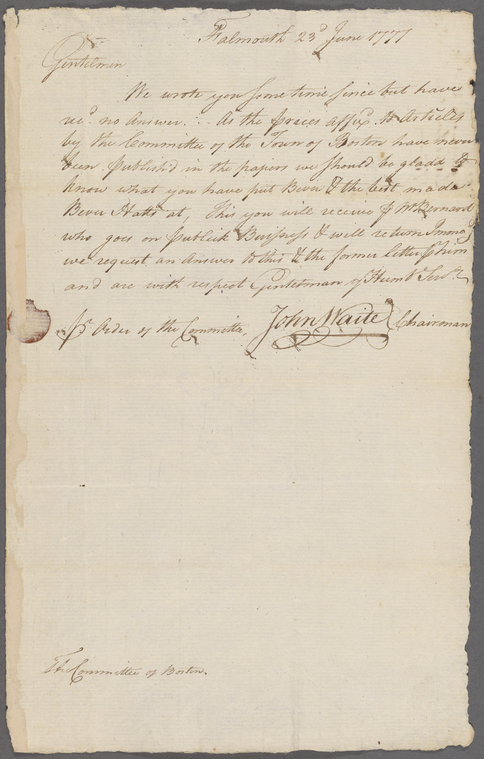 Falmouth 23d June 1777
Gentlemen
We wrote you some time since but have
recd no answer. As the prices affixd to Articles
by the Committee of the Town of Boston have never
been publish'd in the papers we should be gladd to
know what you have put Bever & the best made
Bever Hatts at, This you will receive p Mr Bernard
who goes on publick Buisness & will return Immedy
we request an answer to this & the former letter p him
and are with respect Gentlemen yr Humle Servts
pr Order of the Committe John Waite Chairman
To Committee of Boston.